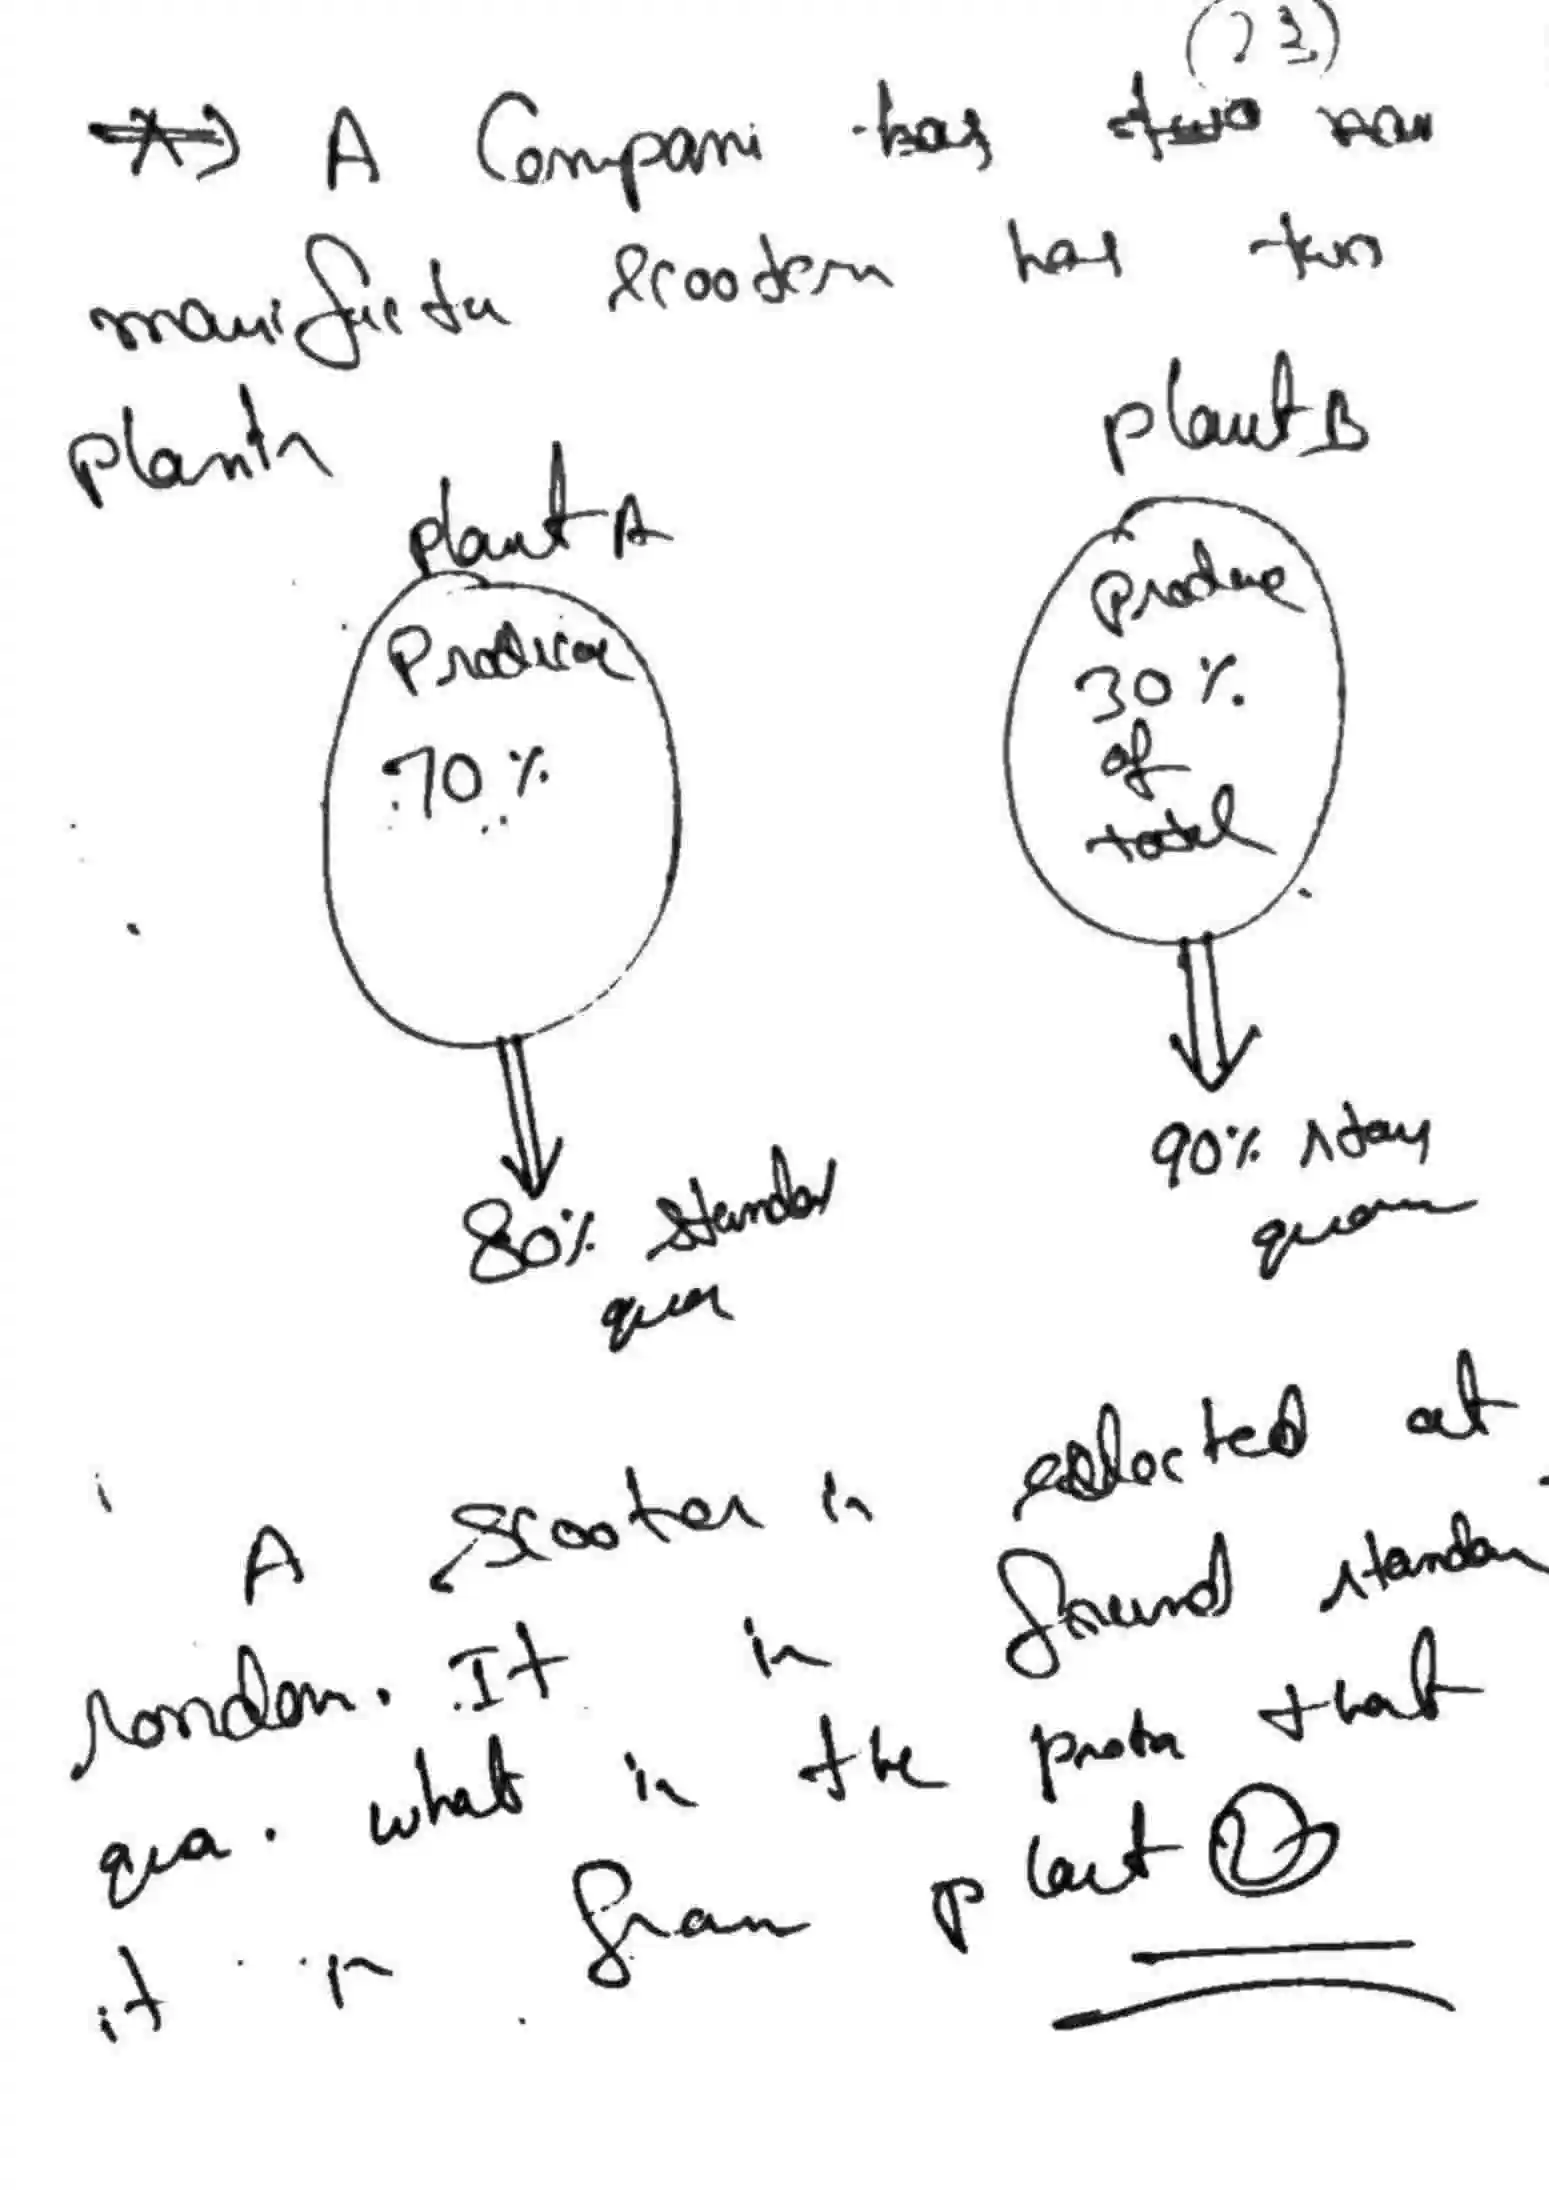 (23)
A Compani has two
manifactu scootern has two
plants
plant B
plant A
Produce
70%
produce
30%
of
total
80% standar
qua
90% stan
qua
A scooter is selected at
random. It is found standar
qua. what is the proba that
it is from plant